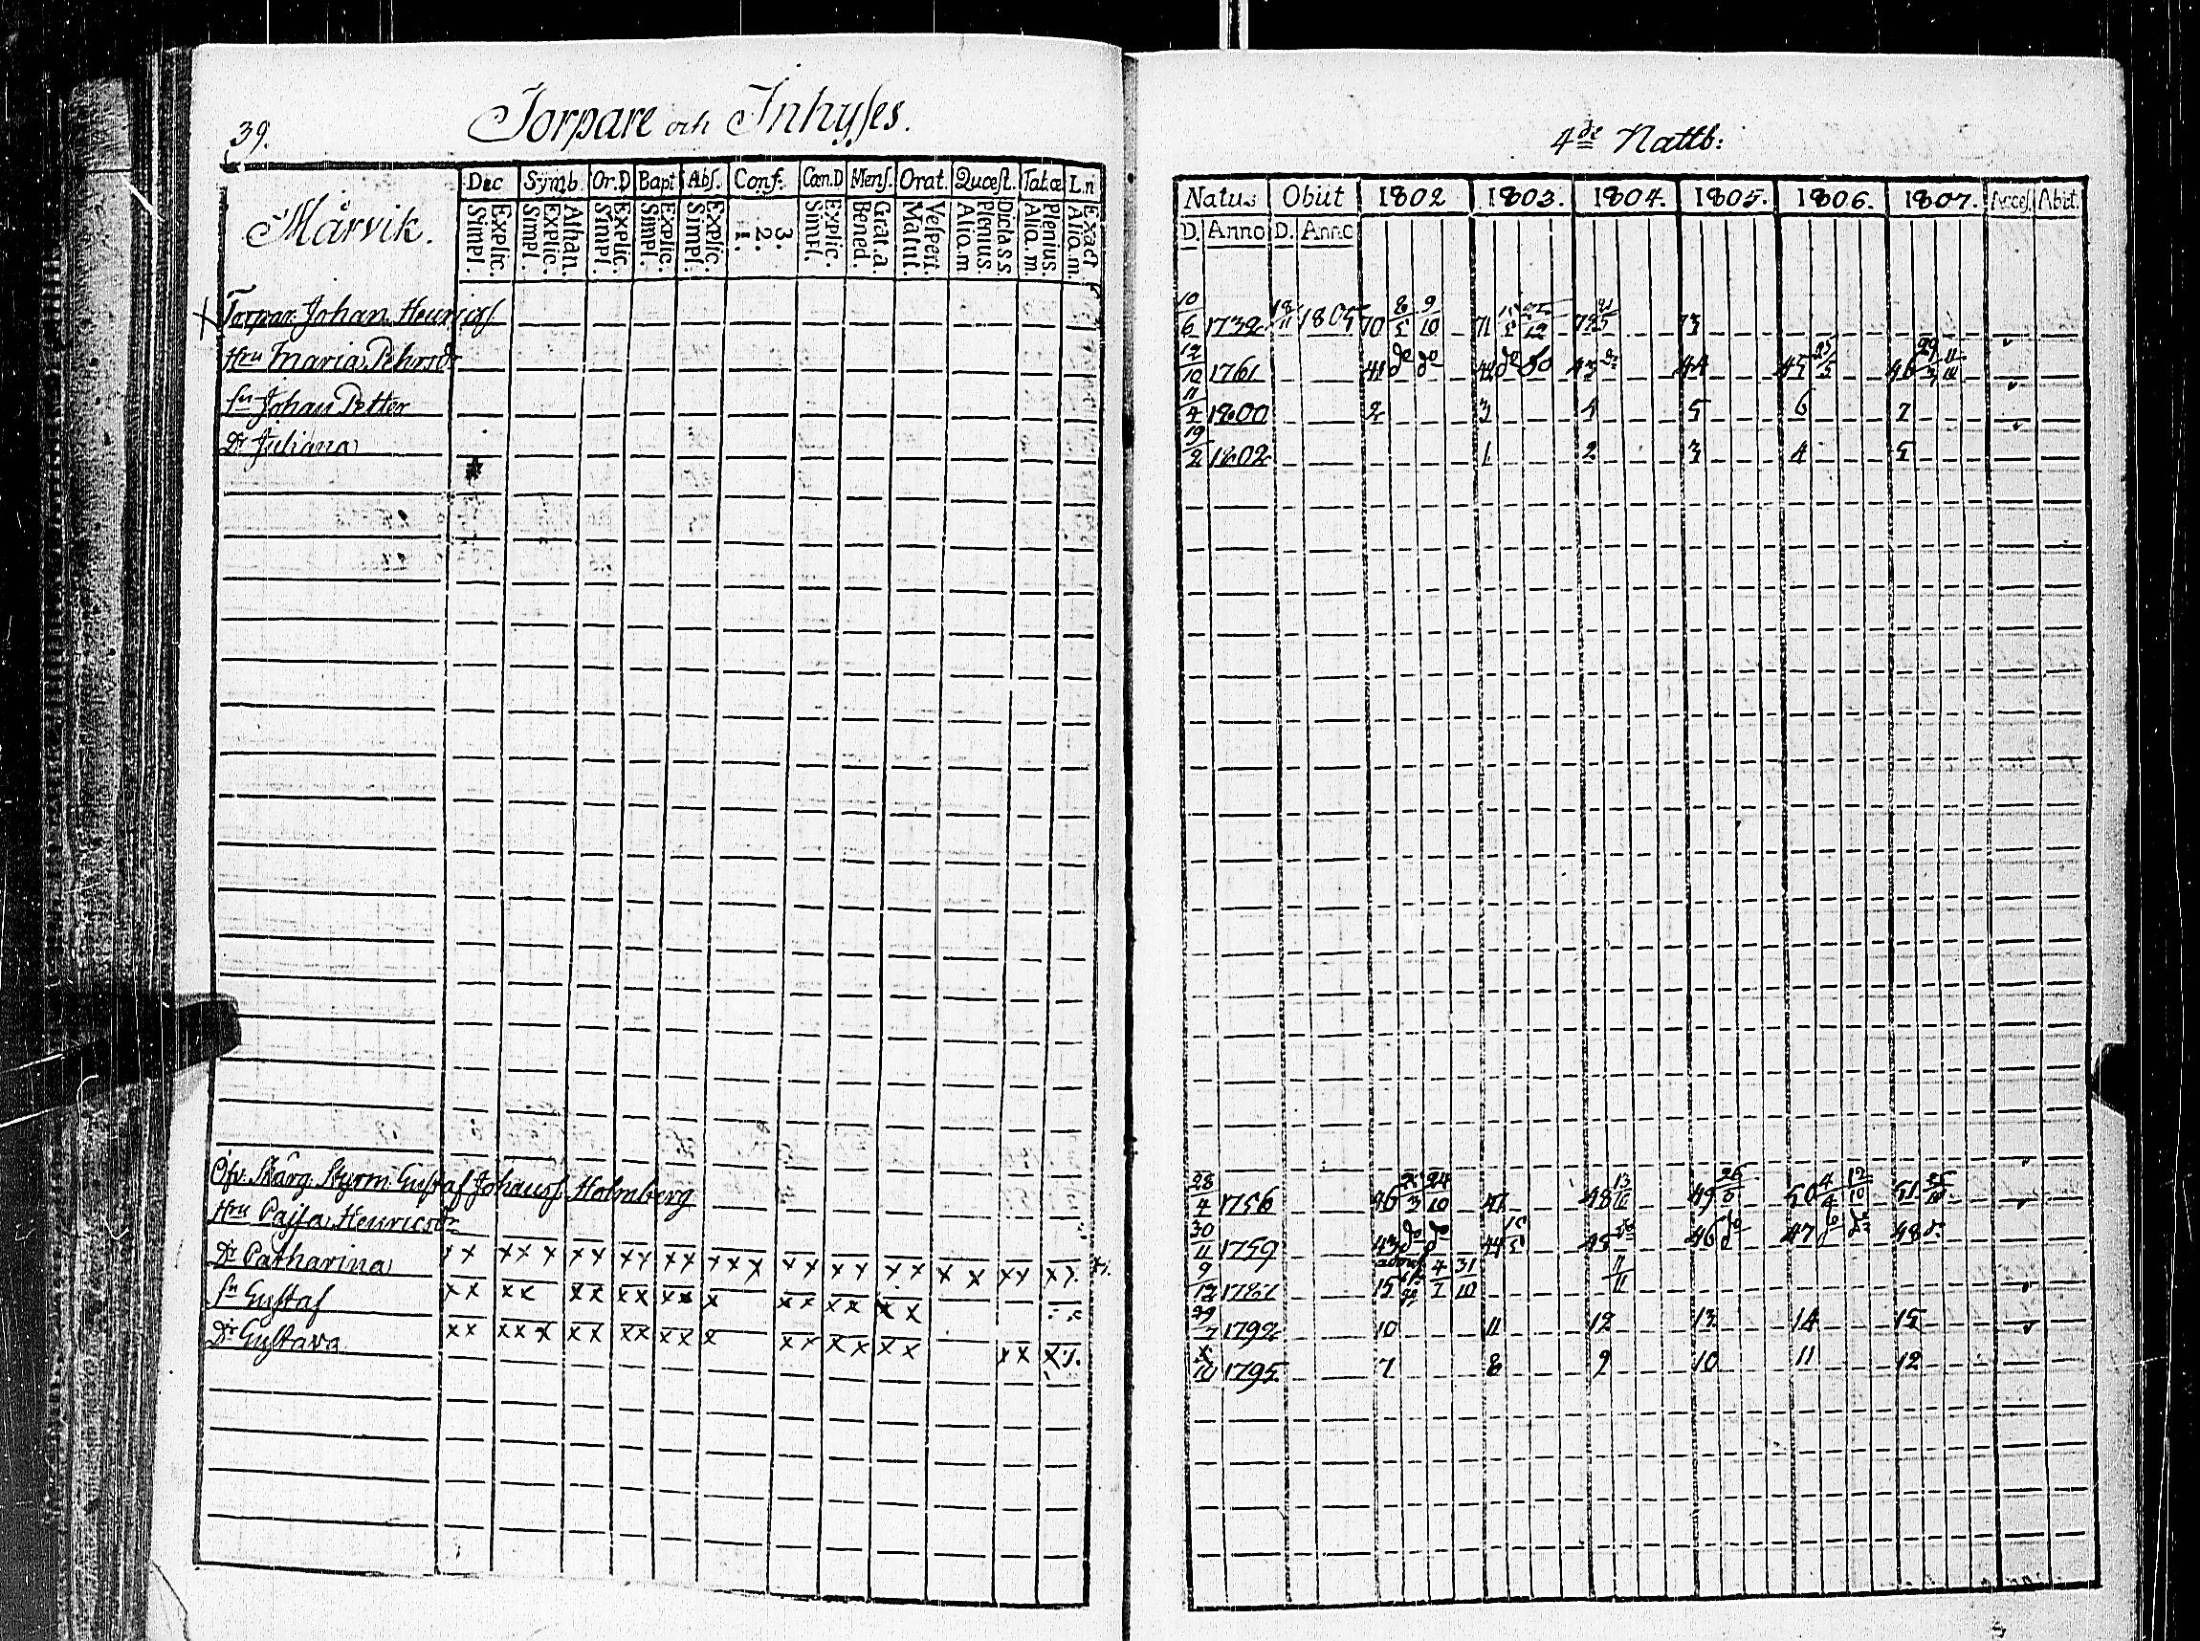 39.
Torpare och Inhyses.
Mårvik.
Dec Symb. Or.D Bapt Abs. Conf. Cœn.D Mens. Orat. Quœst. Tab.œ L.n
Simpl. Explic. Simpl. Explic. Athan. Simpl. Explic. Simpl. Explic. Simpl. Explic. 1. 2. 3. Simpl. Explic. Bened. Grat.a. Matut. Vespert. Alio.m Plenius. Dicta s s. Alio.m. Plenius. Alio.m. Exact
Torpar. Johan Henricss
Hru Maria Pehrsdr
Sn Johan Petter
Dr Juliana
Öfv. Skärg. Styrm. Gustaf Johanss. Holmberg
Hru Cajsa Henricsdr
Dr Catharina x x x x x x x x x x x x x x x x x x x x x x x x x x
Sn Gustaf x x x x x x x x x x x x x x x x x
Dr Gustava x x x x x x x x x x x x x x x x x x x x x
4de Nattb:
Natus Obiit 1802 1803. 1804. 1805. 1806. 1807. Acces. Abiit.
D. Anno D. Anno
10/6 1732 18/11 1805 70 9/10 71 73
12/10 1761 41 do do 42 do do 43 do 44 45 25/5 46
11/4 1800 2 3 4 5 6 7
19/2 1802 1 2 3 4 5
28/4 1756 46 24/10 47 48 49 50 4/4 12/10 51
30/11 1759 43 do do 44 45 do 46 do 47 do do 48 do
9/12 1787 15 31/10 11/11
1792 10 11 12 13 14 15
1795 7 8 9 10 11 12